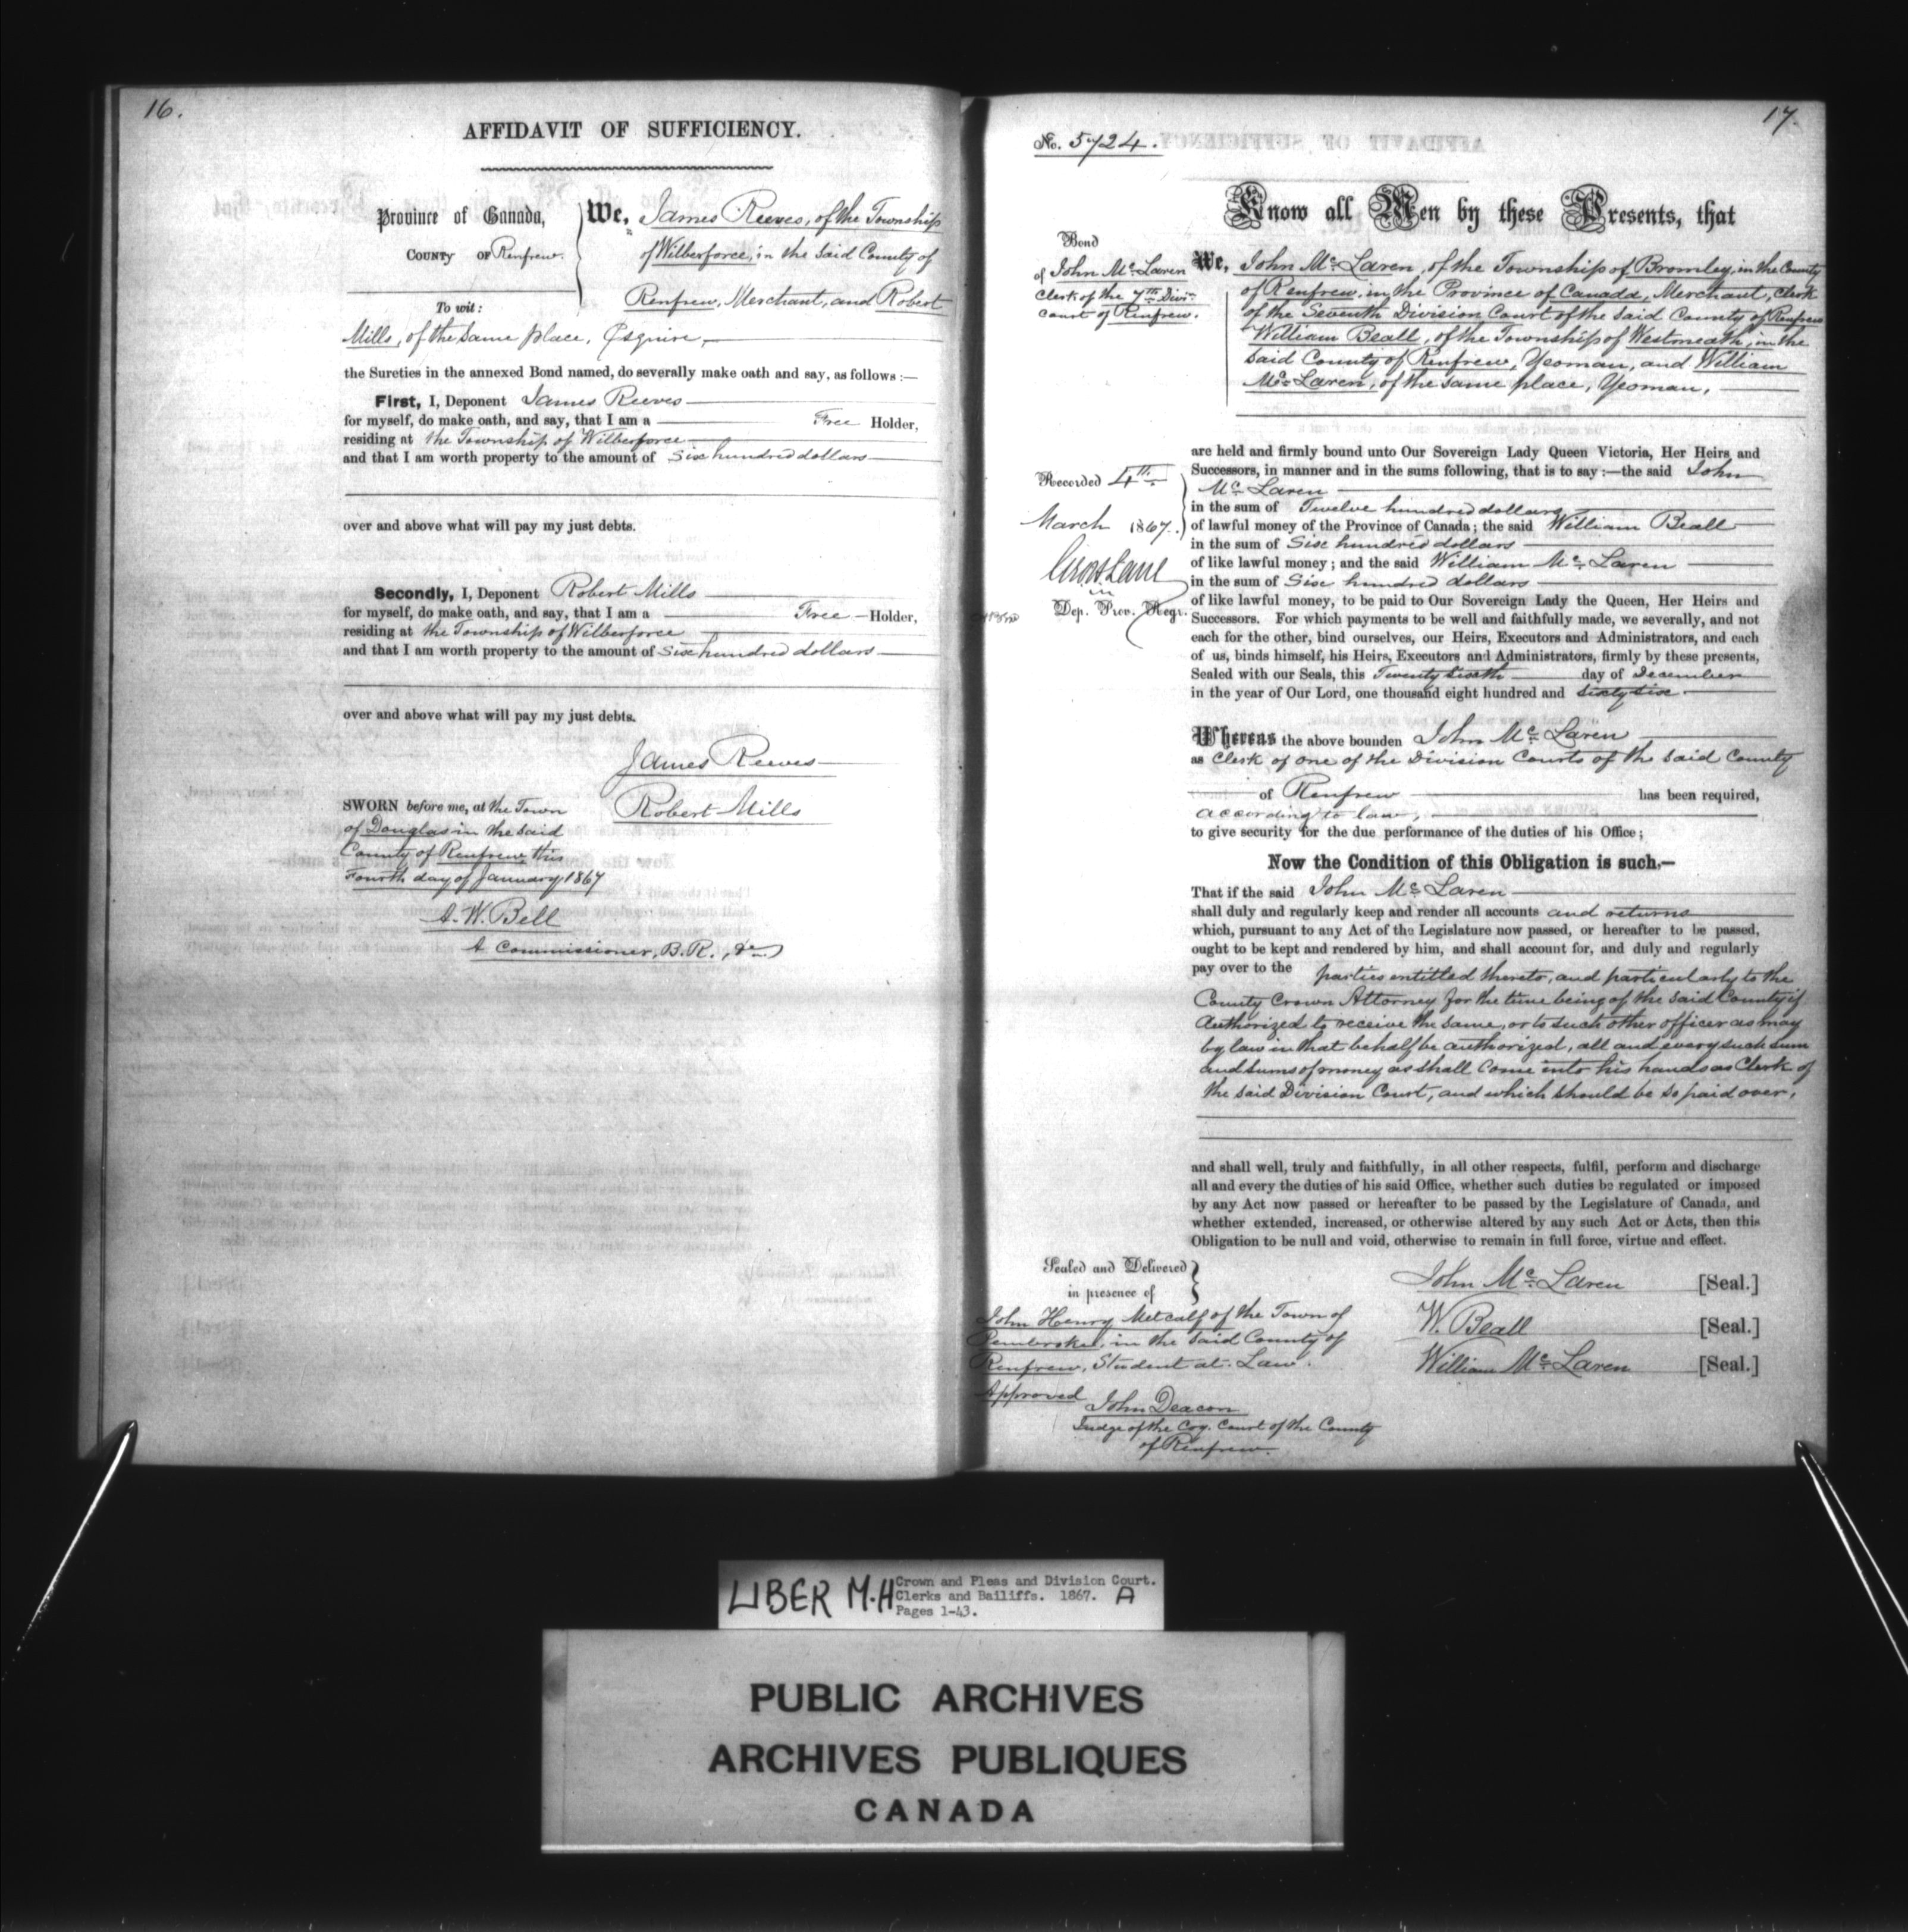 16.
AFFIDAVIT OF SUFFICIENCY.
Province of Canada,
COUNTY OF Renfrew.
To wit:
We, James Reeves, of the Township
of Wilberforce, in the said County of
Renfrew, Merchant, and Robert
Mills, of the same place, Esquire,
the Sureties in the annexed Bond named, do severally make oath and say, as follows:—
First, I, Deponent James Reeves
for myself, do make oath, and say, that I am a Free Holder,
residing at the Township of Wilberforce
and that I am worth property to the amount of Six hundred dollars
over and above what will pay my just debts.
Secondly, I, Deponent Robert Mills
for myself, do make oath, and say, that I am a Free Holder,
residing at the Township of Wilberforce
and that I am worth property to the amount of Six hundred dollars
over and above what will pay my just debts.
James Reeves
Robert Mills
SWORN before me, at the Town
of Douglas in the said
County of Renfrew, this
Fourth day of January 1867
A. W. Bell
A Commissioner, B.R., &c
17.
No. 5724.
Know all Men by these Presents, that
Bond
of John Mc Laren
Clerk of the 7th Divn.
Court of Renfrew.
We, John Mc Laren, of the Township of Bromley, in the County
of Renfrew, in the Province of Canada, Merchant, Clerk
of the Seventh Division Court of the said County of Renfrew
William Beall, of the Township of Westmeath, in the
said County of Renfrew, Yeoman, and William
Mc Laren, of the same place, Yeoman,
are held and firmly bound unto Our Sovereign Lady Queen Victoria, Her Heirs and
Successors, in manner and in the sums following, that is to say:—the said John
Mc Laren
in the sum of Twelve hundred dollars
of lawful money of the Province of Canada; the said William Beall
in the sum of Six hundred dollars
of like lawful money; and the said William Mc Laren
in the sum of Six hundred dollars
of like lawful money, to be paid to Our Sovereign Lady the Queen, Her Heirs and
Successors. For which payments to be well and faithfully made, we severally, and not
each for the other, bind ourselves, our Heirs, Executors and Administrators, and each
of us, binds himself, his Heirs, Executors and Administrators, firmly by these presents,
Sealed with our Seals, this Twenty sixth day of December
in the year of Our Lord, one thousand eight hundred and sixty six.
Recorded 4th
March 1867.
Dep. Prov. Regr.
Whereas the above bounden John Mc Laren
as Clerk of one of the Division Courts of the said County
of Renfrew has been required,
according to law,
to give security for the due performance of the duties of his Office;
Now the Condition of this Obligation is such,—
That if the said John Mc Laren
shall duly and regularly keep and render all accounts and returns
which, pursuant to any Act of the Legislature now passed, or hereafter to be passed,
ought to be kept and rendered by him, and shall account for, and duly and regularly
pay over to the parties entitled thereto, and particularly to the
County Crown Attorney for the time being of the said County if
Authorized to receive the same, or to such other officer as may
by law in that behalf be authorized, all and every such sum
and sums of money as shall come into his hands as Clerk of
the said Division Court, and which should be so paid over,
and shall well, truly and faithfully, in all other respects, fulfil, perform and discharge
all and every the duties of his said Office, whether such duties be regulated or imposed
by any Act now passed or hereafter to be passed by the Legislature of Canada, and
whether extended, increased, or otherwise altered by any such Act or Acts, then this
Obligation to be null and void, otherwise to remain in full force, virtue and effect.
Sealed and Delivered
in presence of
John Henry Metcalf of the Town of
Pembroke, in the said County of
Renfrew, Student at Law.
John Mc Laren [Seal.]
W. Beall [Seal.]
William Mc Laren [Seal.]
Approved
John Deacon
Judge of the Coy. Court of the County
of Renfrew.
LIBER M.H
Crown and Pleas and Division Court.
Clerks and Bailiffs. 1867. A
Pages 1-43.
PUBLIC ARCHIVES
ARCHIVES PUBLIQUES
CANADA